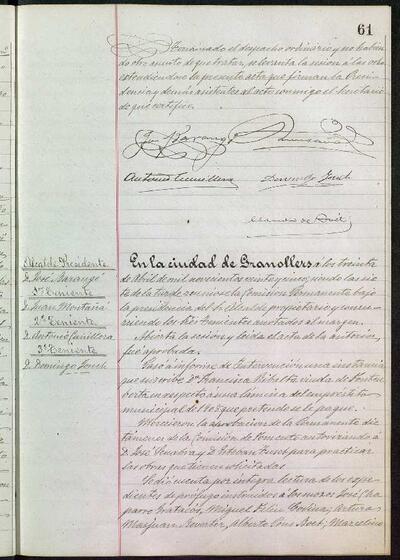 61
Terminado el despacho ordinario y no habien
do otro asunto de que tratar, se levanta la sesión a las ocho
extendiéndose la presente acta que firman la Presi
dencia y demás asistentes al acto conmigo el Secretario
de que certifico.
Antonio Cumellera
Domingo Jonch
Alcalde Presidente
D. José Barangé
1er Teniente
D. Juan Montañá
2º Teniente
D. Antonio Cumellera
3er Teniente
D. Domingo Jonch
En la ciudad de Granollers a los treinta
de Abril de mil novecientos veinte y cinco, siendo las sie
te de la tarde se reúne la Comisión Permanente bajo
la presidencia del Sr. Alcalde propietario y concu
rriendo los Sres. Tenientes anotados al margen.
Abierta la sesión y leida el acta de la anterior,
fue aprobada.
Pasó a informe de Intervención una instancia
que suscribe Dª Francisca Ribalta viuda de
berta respecto a una lámina del empréstito
municipal de 1908 que pretende se le pague.
Merecieron la aprobación de la Permanente dic
támenes de la Comisión de Fomento autorizando a
D. José y D. Esteban para practicar
las obras que tienen solicitadas.
Se dió cuenta por íntegra lectura de los expe
dientes de prófugo instruidos a los mozos José Cha
parro Miguel Feliu Arturo
Masjuan Reverter, Alberto Pons Marcelino